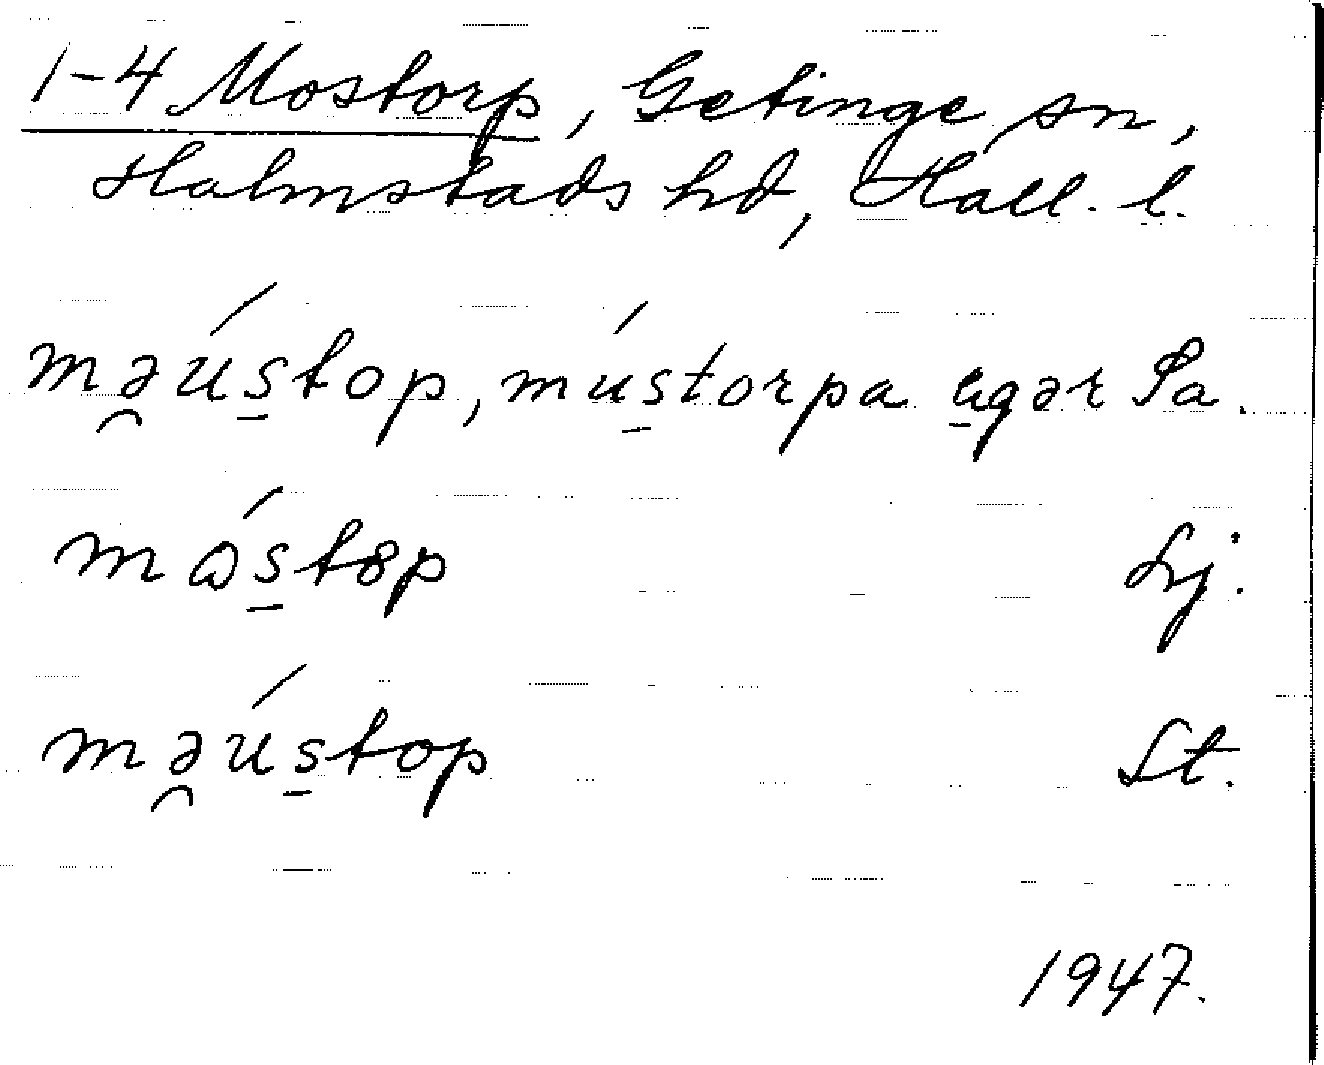 1-4 Mostorp, Getinge sn,
Halmstads hd, Hall. l.
mə̯ús̠top, mús̠torpa a̠gər Pa.
mós̠tɵp Lj.
mə̯ús̠top St.
1947.